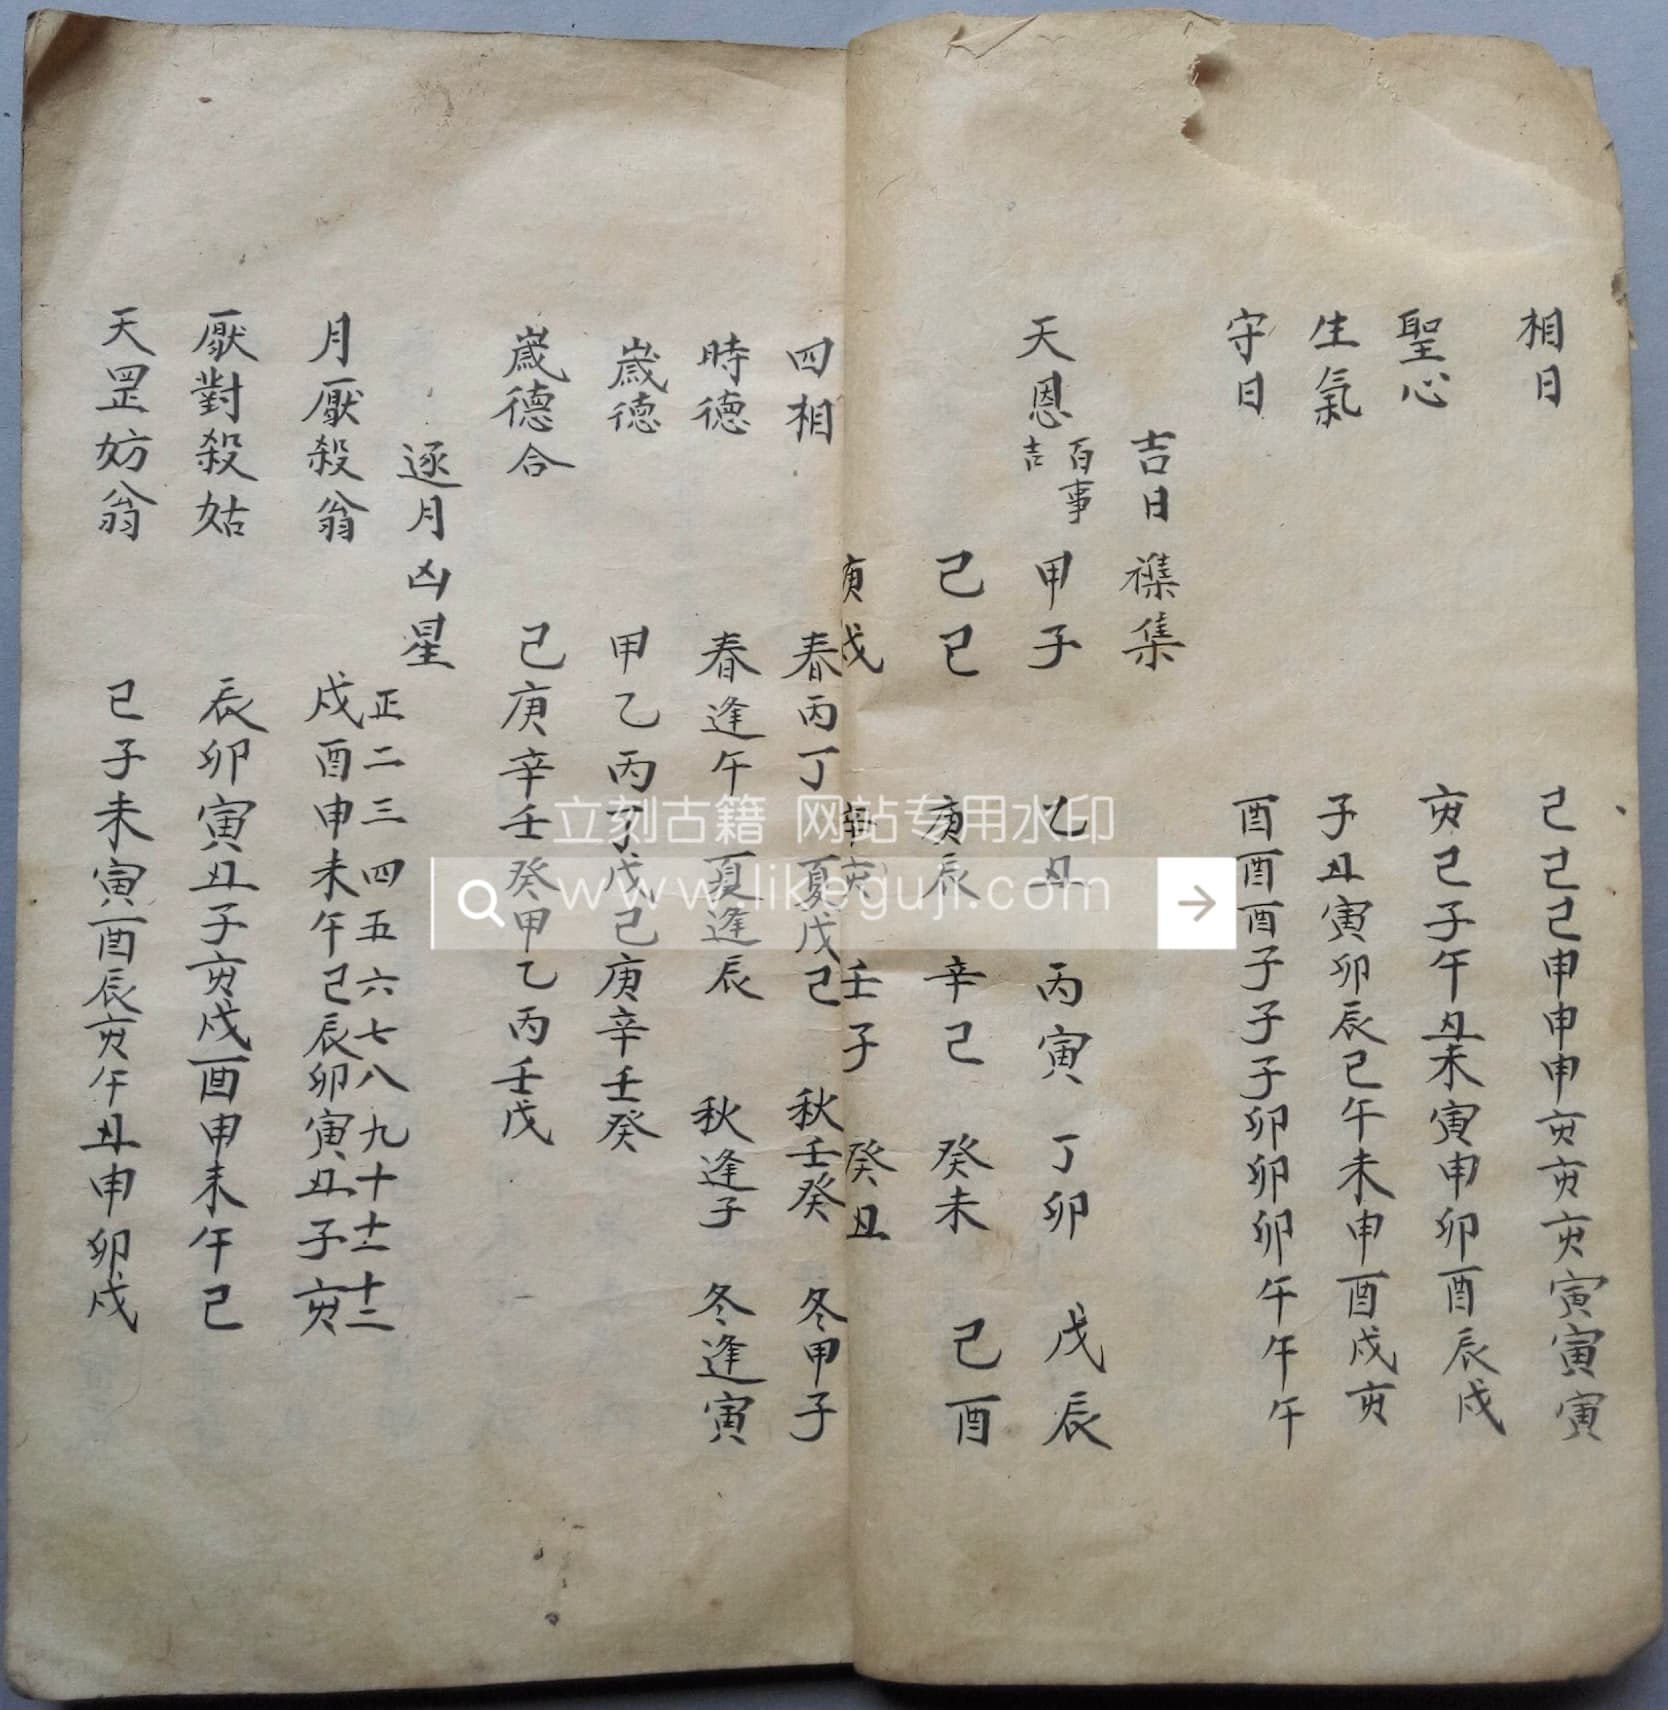 相日 己己己申申申亥亥亥寅寅寅
聖心 亥己子午丑未寅申卯酉辰戌
生氣 子丑寅卯辰巳午未申酉戌亥
守日 酉酉酉子子子卯卯卯午午午
吉日襍集
天恩 百事吉 甲子 乙丑 丙寅 丁卯 戊辰
己巳 庚辰 辛巳 癸未 己酉
庚戌 辛亥 壬子 癸丑
四相 春丙丁 夏戊己 秋壬癸 冬甲子
時德 春逢午 夏逢辰 秋逢子 冬逢寅
歲德 甲乙丙丁戊己庚辛壬癸
歲德合 己庚辛壬癸甲乙丙壬戊
逐月凶星 正二三四五六七八九十十一十二
月厭殺翁 戌酉申未午己辰卯寅丑子亥
厭對殺姑 辰卯寅丑子亥戌酉申未午己
天罡妨翁 巳子未寅酉辰亥午丑申卯戌
立刻古籍 网站专用水印
www.likeguji.com